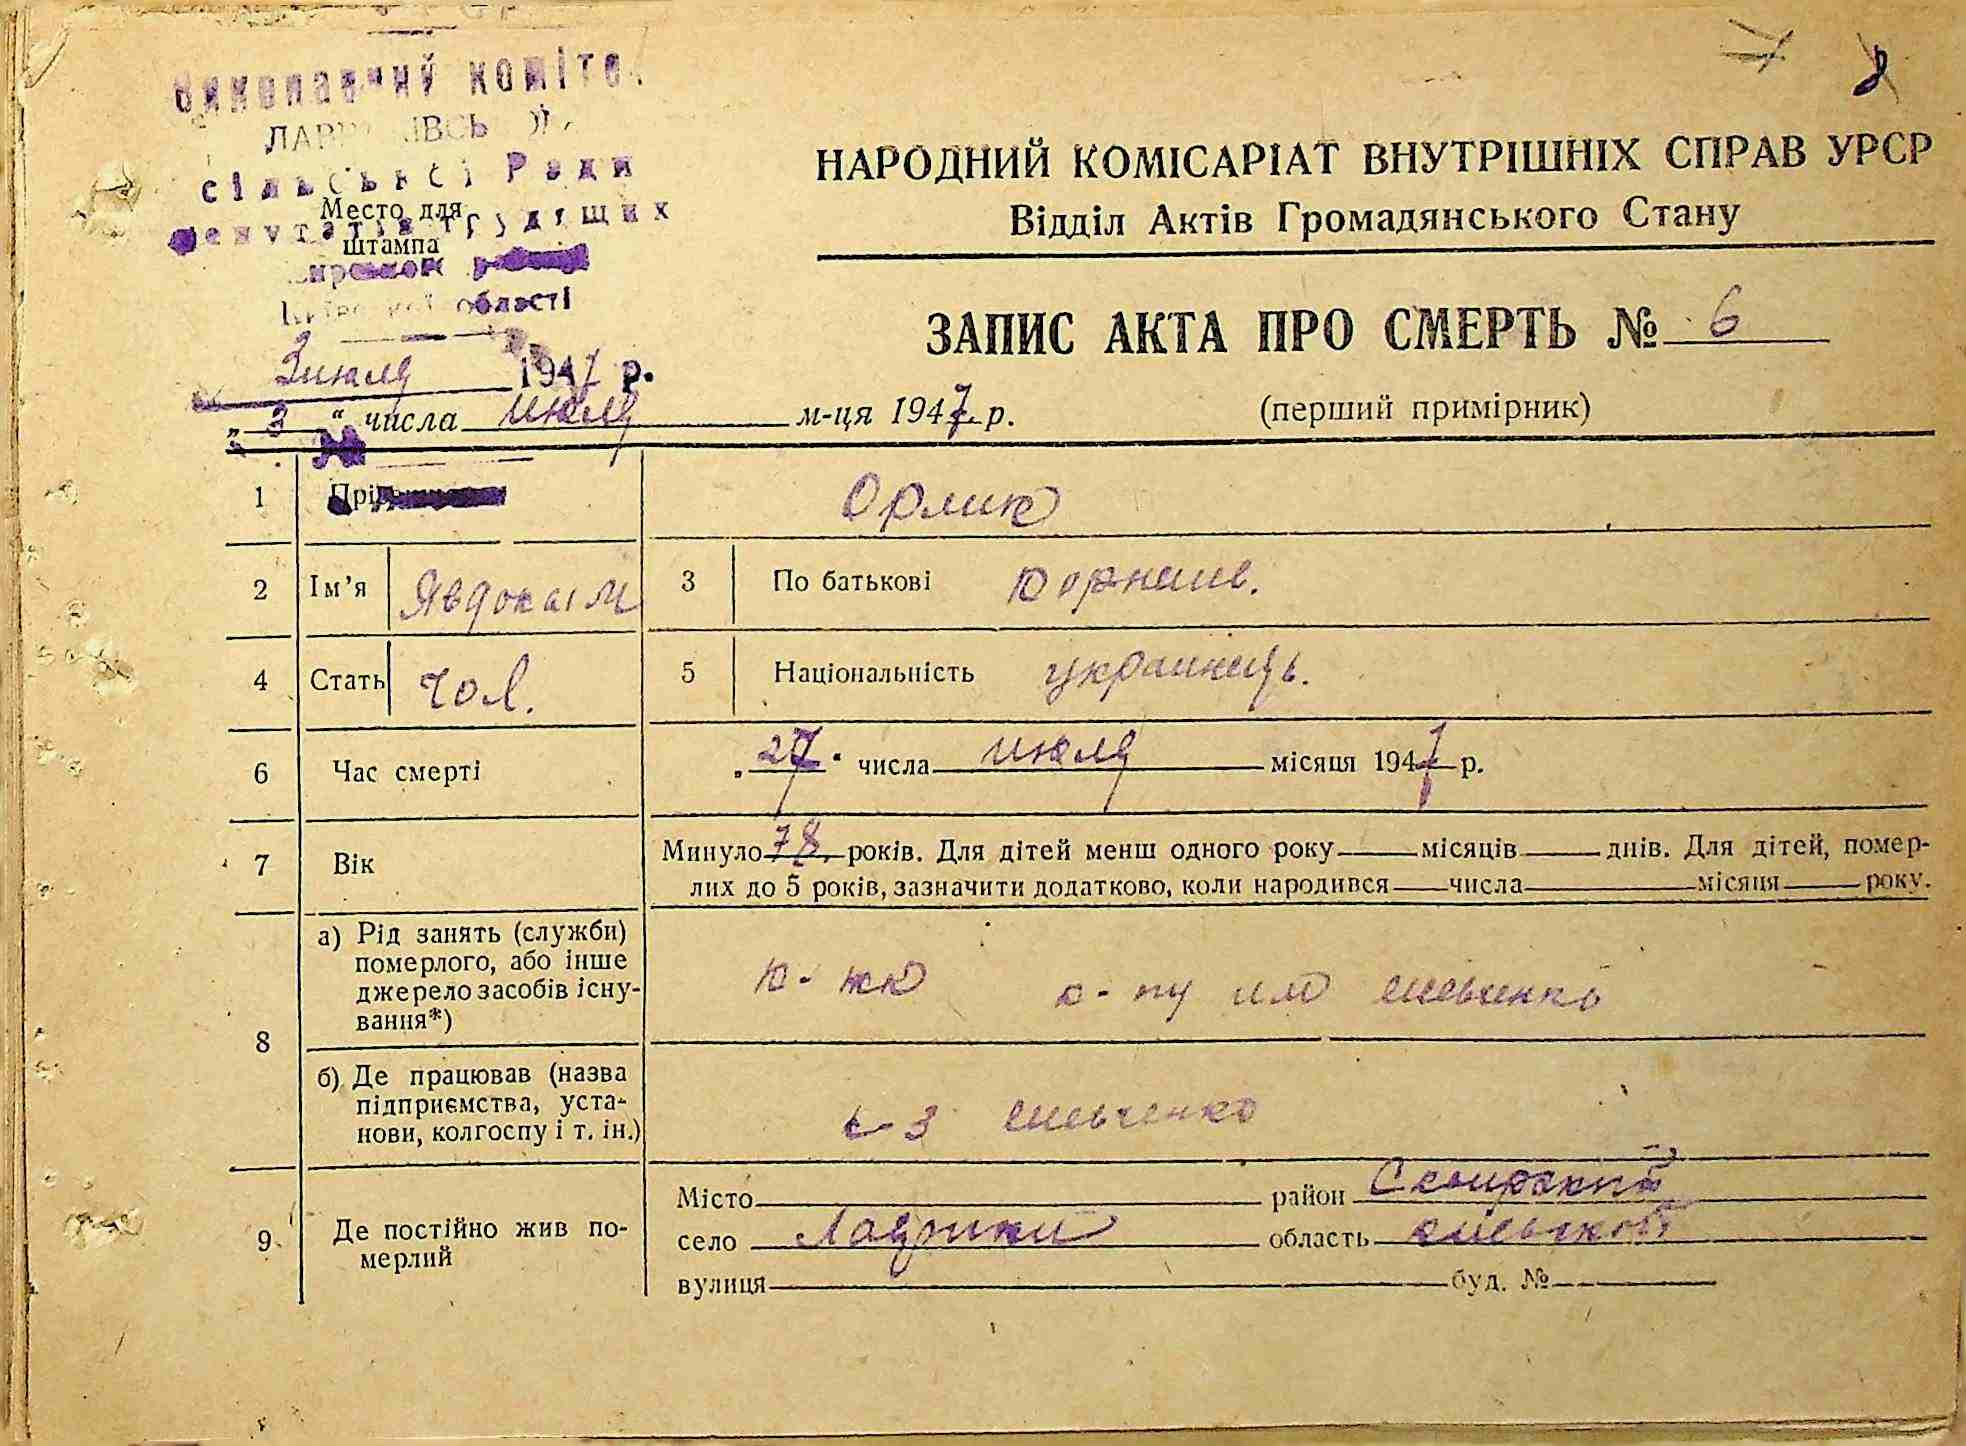 8
Виконавчий комітет
сільської Ради
депутатів трудящих
Место для
штампа
області
3 июля 1947 р.
НАРОДНИЙ КОМІСАРІАТ ВНУТРІШНІХ СПРАВ УРСР
Відділ Актів Громадянського Стану
ЗАПИС АКТА ПРО СМЕРТЬ № 6
(перший примірник)
„ 3 “ числа июля м-ця 1947 р.
1 Орлик
2 Ім'я Явдоким 3 По батькові Корниив.
4 Стать чол. 5 Національність украинець.
6 Час смерті „27“ числа июля місяця 1947 р.
7 Вік Минуло 78 років. Для дітей менш одного року місяців днів. Для дітей, помер-
лих до 5 років, зазначити додатково, коли народився числа місяця року.
8 а) Рід занять (служби)
померлого, або інше
джерело засобів існу-
вання*)
к-жк к-пу им Шевченко
б) Де працював (назва
підприємства, уста-
нови, колгоспу і т. ін.)
Шевченко
9 Де постійно жив по-
мерлий
Місто район Сквирский
село Лаврики область
вулиця буд. №